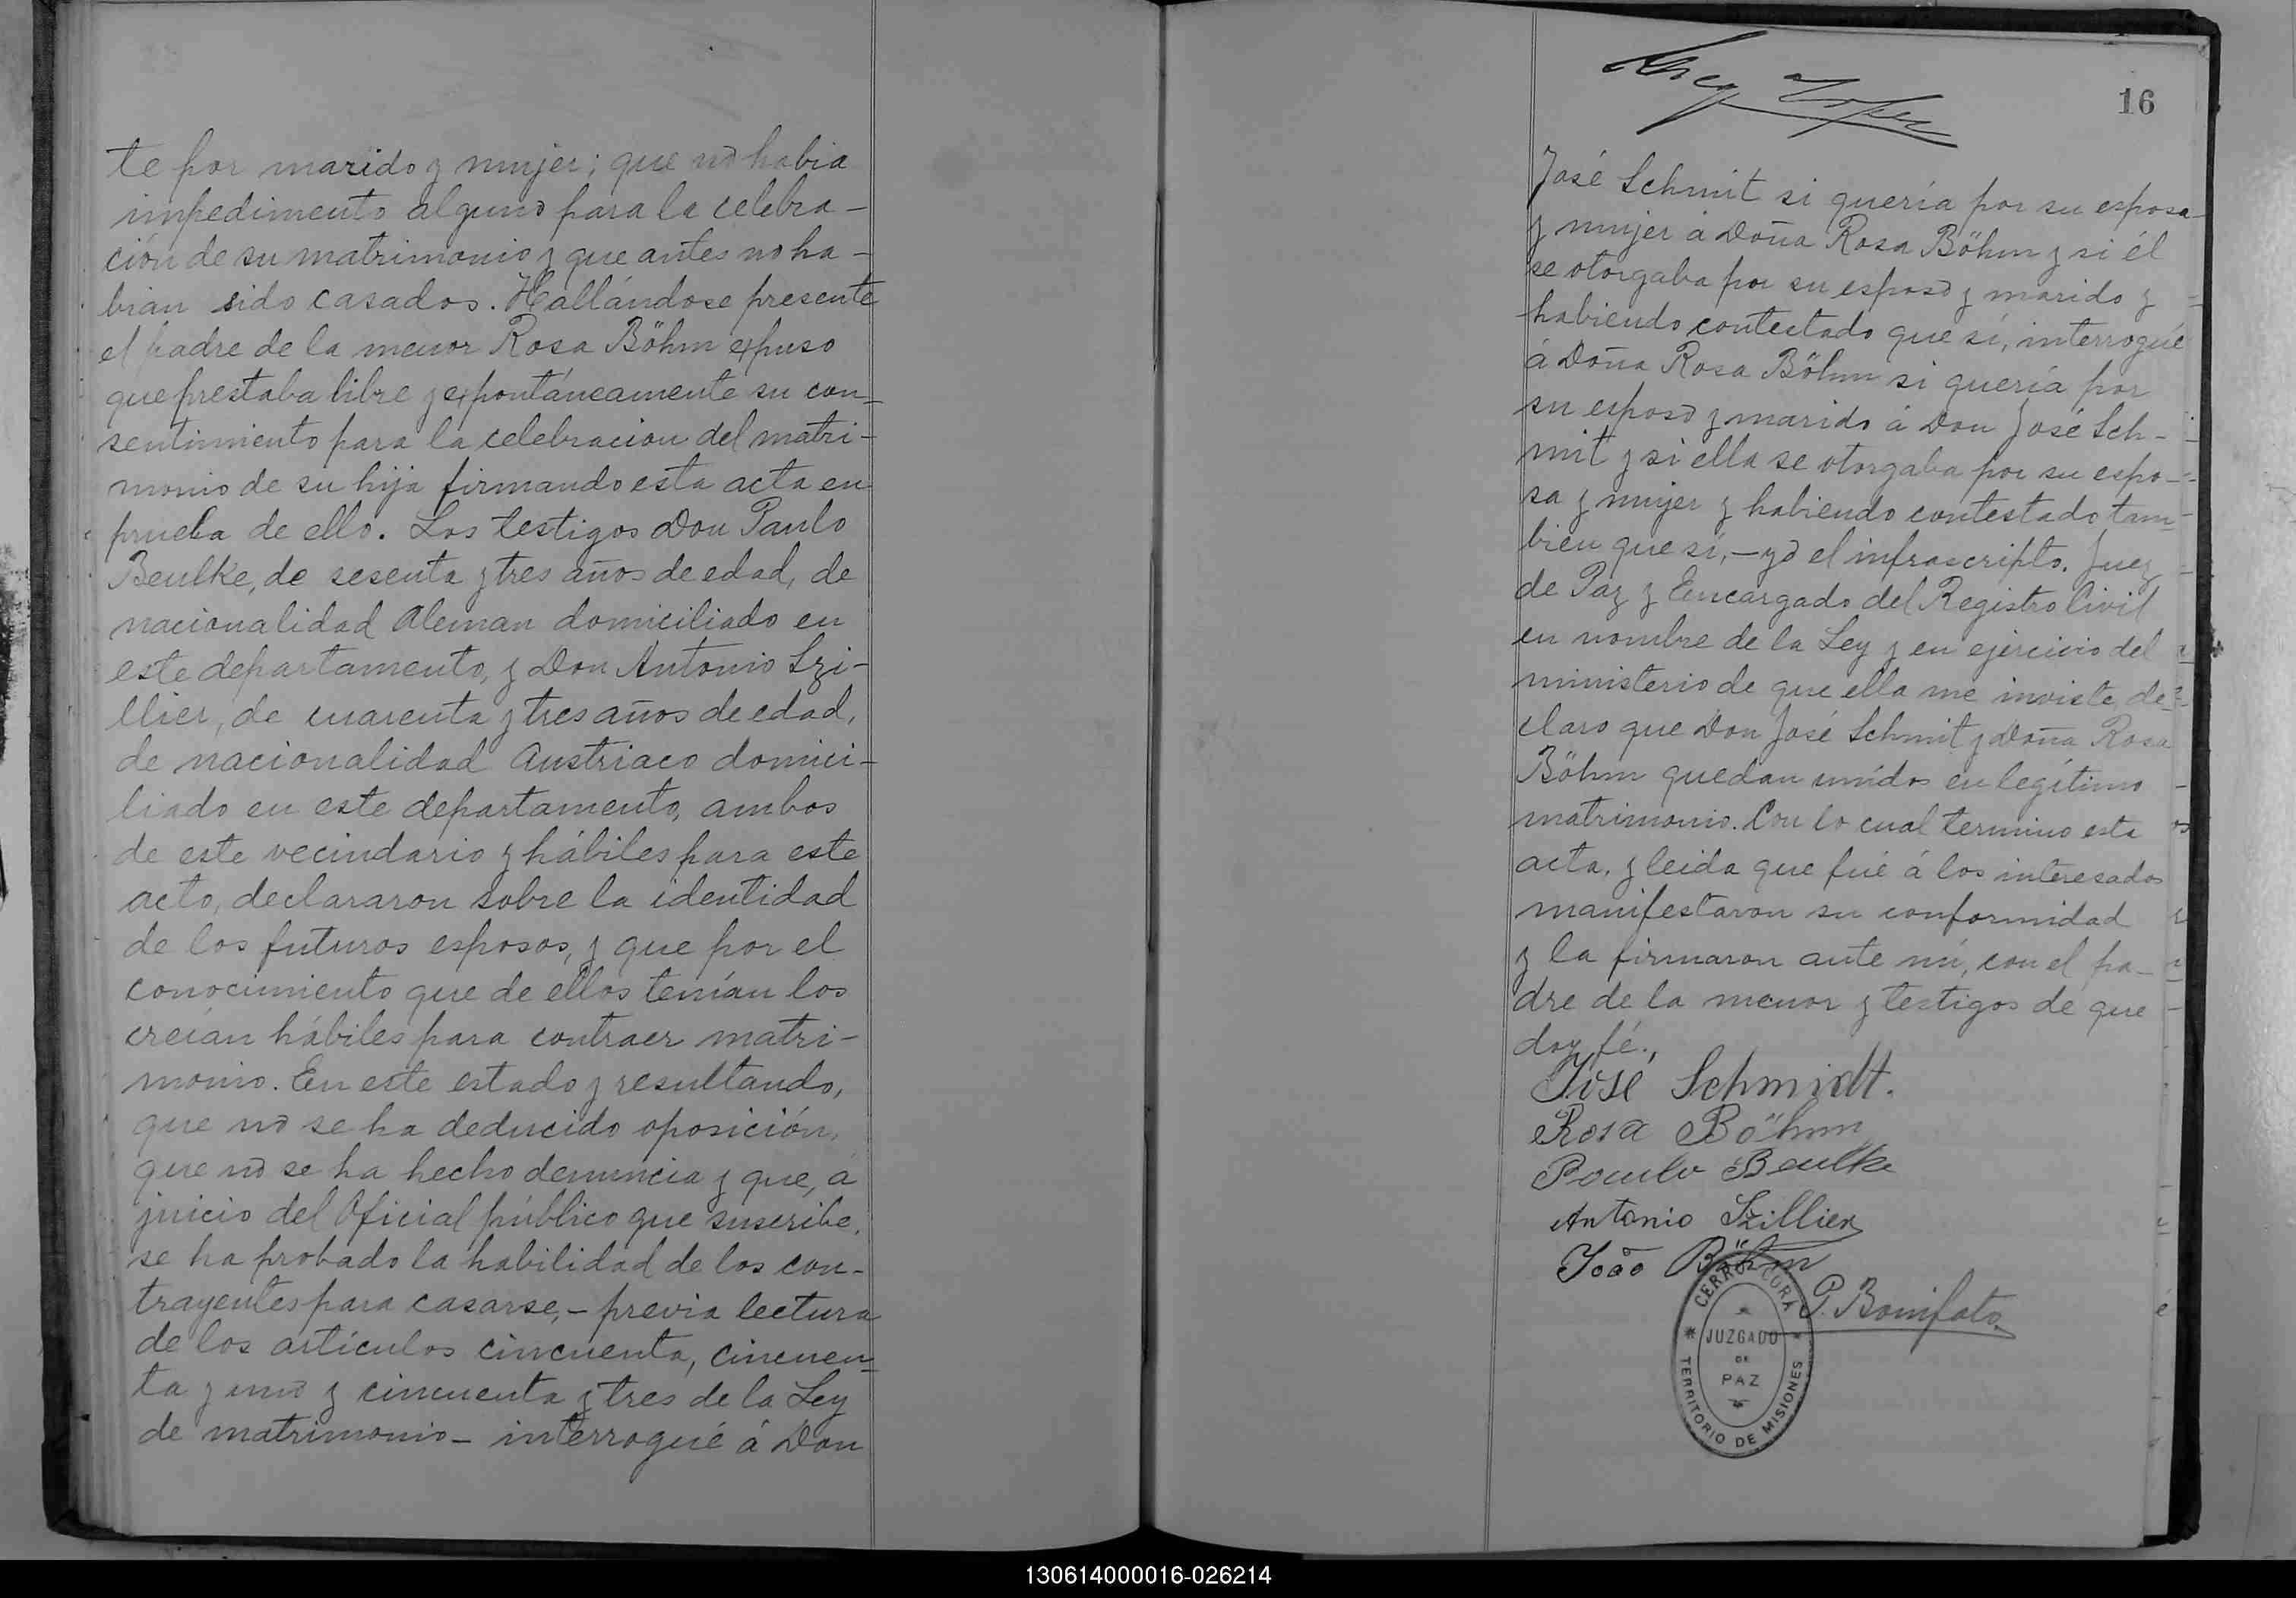 te por marido y mujer; que no habia
impedimento alguno para la celebra-
ción de su matrimonio y que antes no ha-
bian sido casados. Hallándose presente
el padre de la menor Rosa Böhm expuso
que prestaba libre y espontáneamente su con-
sentimiento para la celebracion del matri-
monio de su hija firmando esta acta en
prueba de ello. Los testigos Don Paulo
Beulke, de sesenta y tres años de edad, de
nacionalidad Aleman domiciliado en
este departamento, y Don Antonio Szi-
llier, de cuarenta y tres años de edad,
de nacionalidad Austriaco domici-
liado en este departamento, ambos
de este vecindario y hábiles para este
acto, declararon sobre la identidad
de los futuros esposos, y que por el
conocimiento que de ellos tenían los
creían hábiles para contraer matri-
monio. En este estado y resultando,
que no se ha deducido oposición,
que no se ha hecho denuncia y que, á
juicio del Oficial público que suscribe,
se ha probado la habilidad de los con-
trayentes para casarse,- previa lectura
de los artículos cincuenta, cincuen-
ta y uno y cincuenta y tres de la Ley
de matrimonio- interrogué á Don
16
José Schmit si quería por su esposa
y mujer á Doña Rosa Böhm y si él
se otorgaba por su esposo y marido y
habiendo contestado que sí, interrogué
á Doña Rosa Böhm si quería por
su esposo y marido á Don José Sch-
mit y si ella se otorgaba por su espo-
sa y mujer y habiendo contestado tam-
bién que sí,- yo el infrascripto. Juez
de Paz y Encargado del Registro Civil
en nombre de la Ley y en ejercicio del
ministerio de que ella me inviste, de-
claro que Don José Schmit y Doña Rosa
Böhm quedan unidos en legítimo
matrimonio. Con lo cual termino esta
acta, y leida que fué á los interesados
manifestaron su conformidad
y la firmaron ante mí, con el pa-
dre de la menor y testigos de que
doy fé.,
José Schmidt.
Rosa Böhm
Paulo Beulke
Antonio Szillier
João Böhm
P. Bonifato
CERRO CORÁ
JUZGADO
DE
PAZ
TERRITORIO DE MISIONES
130614000016-026214